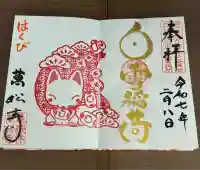 奉拝
令和七年
二月八日
白雪稲荷
はくび
萬松寺